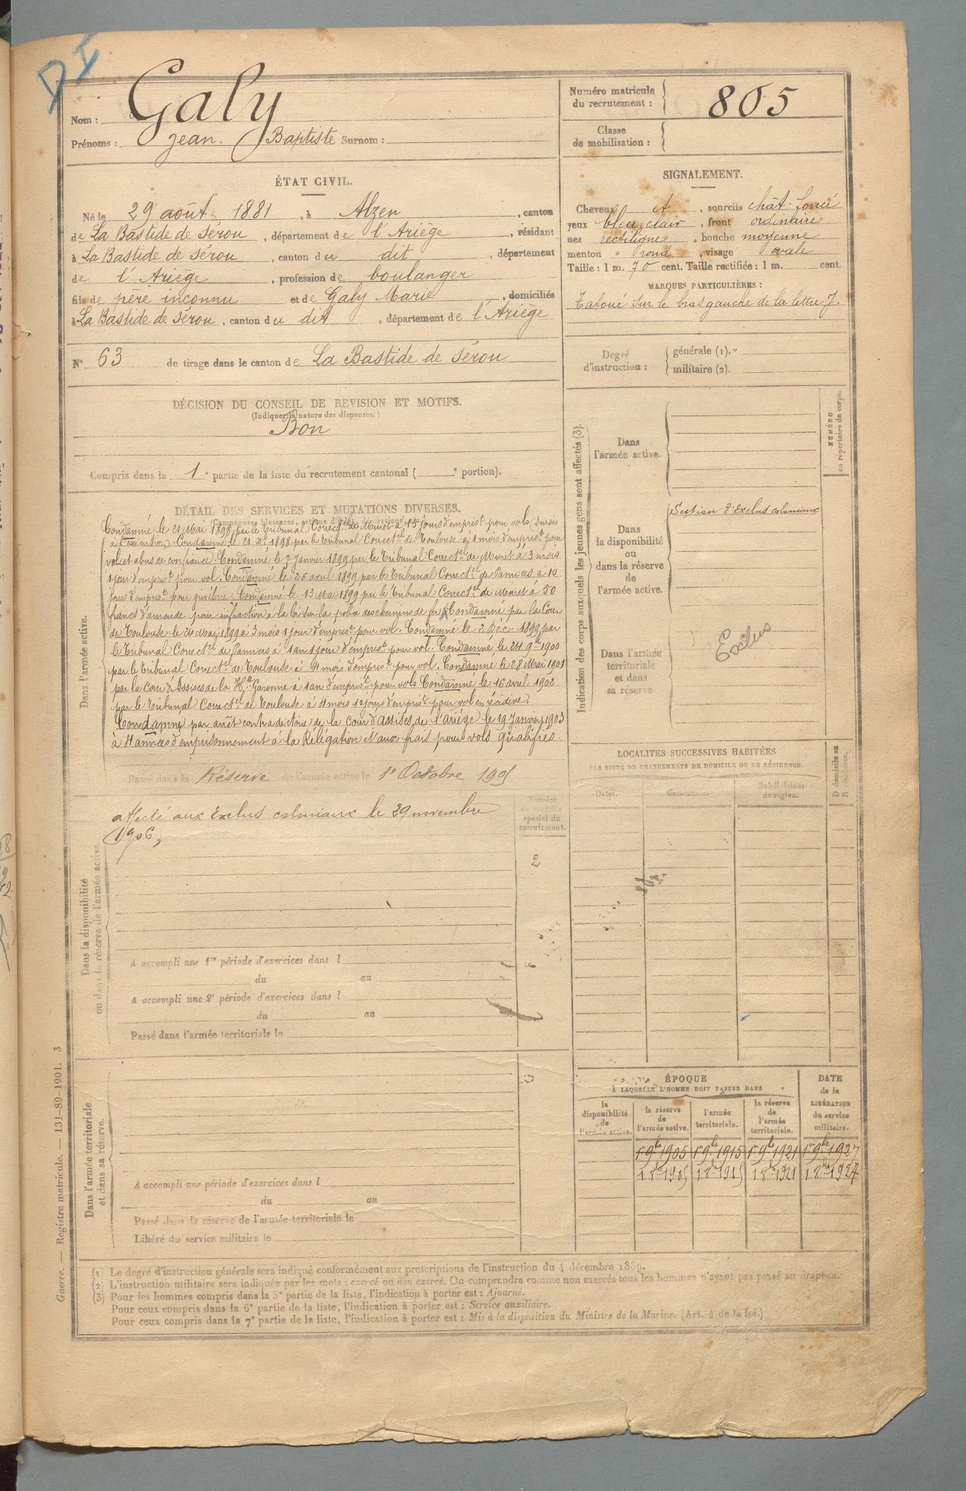 DI
Nom : Galy
Prénoms : Jean Baptiste Surnom :
Numéro matricule du recrutement : 805
Classe de mobilisation :
ÉTAT CIVIL.
Né le 29 août 1881, à Alzen, canton
de La Bastide de Sérou, département de l'Ariège, résidant
à La Bastide de Sérou, canton du dit, département
de l'Ariège, profession de boulanger
fils de père inconnu et de Galy Marie, domiciliés
à La Bastide de Sérou, canton du dit, département de l'Ariège
N° 63 de tirage dans le canton de La Bastide de Sérou
SIGNALEMENT.
Cheveux et, sourcils chât. foncé
yeux bleu clair, front ordinaire
nez rectiligne, bouche moyenne
menton rond, visage ovale
Taille : 1 m. 70 cent. Taille rectifiée : 1 m. cent.
MARQUES PARTICULIÈRES :
Tatoué sur le bras gauche de la lettre J.
Degré d'instruction : générale (1).
militaire (2).
DÉCISION DU CONSEIL DE REVISION ET MOTIFS.
(Indiquer la nature des dispenses.)
Bon
Compris dans la 1e partie de la liste du recrutement cantonal ( e portion).
DÉTAIL DES SERVICES ET MUTATIONS DIVERSES.
Dans l'armée active.
Condamné le 21 Mai 1897 par le Tribunal Correct. de Muret à 15 jours d'empris. pour vols
Condamné le 1898 par le Tribunal Correct. de Toulouse à 1 mois d'empris. pour
vol et abus de confiance. Condamné le 7 Janvier 1899 par le Tribunal Correct. de Muret à 3 mois
1 jour d'empris. pour vol. Condamné le 26 avril 1899 par le Tribunal Correct. de Pamiers à 10
jours d'empris. pour Condamné le 13 Mai 1899 par le Tribunal Correct. de Muret à 50
francs d'amende pour infraction à la loi sur la police des chemins de fer. Condamné par la Cour
de Toulouse le 24 Mai 1899 à 3 mois 1 jour d'empris. pour vol. Condamné le 2 Déc. 1899 par
le Tribunal Correct. de Pamiers à 1 an 1 jour d'empris. pour vol. Condamné le 24 9bre 1900
par le Tribunal Correct. de Toulouse à 4 mois d'empris. pour vol. Condamné le 28 Mai 1901
par la Cour d'Assises de la Hte Garonne à 1 an d'empris. pour vols. Condamné le 16 avril 1902
par le Tribunal Correct. de Toulouse à mois jours d'empris. pour vol en récidive.
Condamné par arrêt contradictoire de la Cour d'assises de l'Ariège le 19 Janvier 1903
à 4 années d'emprisonnement à la Relégation et aux frais pour vols qualifiés.
Passé dans la Réserve de l'armée active le 1er Octobre 1905
Dans la disponibilité ou dans la réserve de l'armée active.
Affecté aux Exclus coloniaux le 29 novembre
1906,
Numéro spécial du recrutement.
2
A accompli une 1re période d'exercices dans l
du au
A accompli une 2e période d'exercices dans l
du au
Passé dans l'armée territoriale le
Dans l'armée territoriale et dans sa réserve.
3
A accompli une période d'exercices dans l
du au
Passé dans la réserve de l'armée territoriale le
Libéré du service militaire le
Indication des corps auxquels les jeunes gens sont affectés (3).
NUMÉRO au répertoire du corps.
Dans l'armée active.
Dans la disponibilité ou dans la réserve de l'armée active.
Section d'Exclus coloniaux
Dans l'armée territoriale et dans sa réserve.
Exclus
LOCALITÉS SUCCESSIVES HABITÉES
PAR SUITE DE CHANGEMENTS DE DOMICILE OU DE RÉSIDENCE.
Dates.
Communes.
Subdivisions de région.
D domicile ou R résidence.
ÉPOQUE
À LAQUELLE L'HOMME DOIT PASSER DANS
DATE de la LIBÉRATION du service militaire.
la disponibilité de l'armée active.
la réserve de l'armée active.
l'armée territoriale.
la réserve de l'armée territoriale.
1 9bre 1905 1 9bre 1915 1 9bre 1921 1 9bre 1927
1 8bre 1905 1 8bre 1915 1 8bre 1921 1 8bre 1927
(1) Le degré d'instruction générale sera indiqué conformément aux prescriptions de l'instruction du 4 décembre 1889.
(2) L'instruction militaire sera indiquée par les mots : exercé ou non exercé. On comprendra comme non exercés tous les hommes n'ayant pas passé au drapeau.
(3) Pour les hommes compris dans la 5e partie de la liste, l'indication à porter est : Ajourné.
Pour ceux compris dans la 6e partie de la liste, l'indication à porter est : Service auxiliaire.
Pour ceux compris dans la 7e partie de la liste, l'indication à porter est : Mis à la disposition du Ministre de la Marine. (Art. 4 de la loi.)
Guerre. — Registre matricule. — 131-89-1901. 3